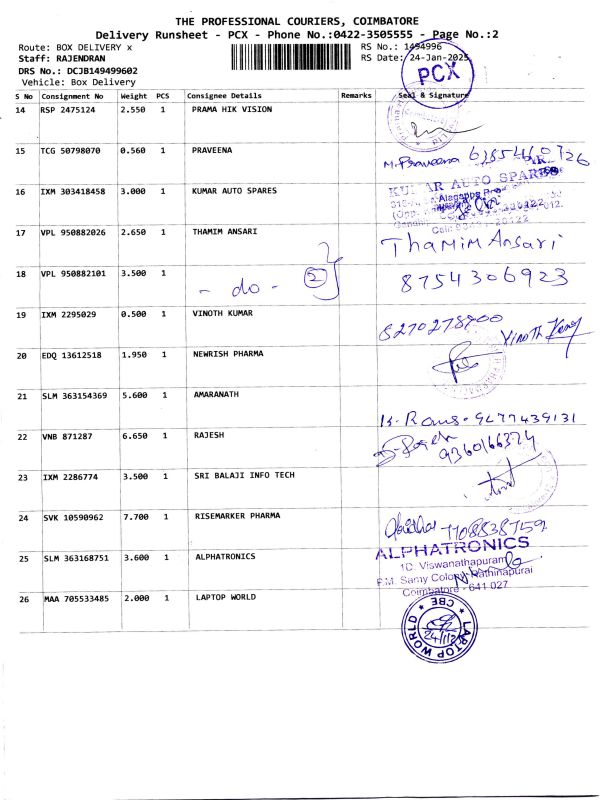 THE PROFESSIONAL COURIERS, COIMBATORE
Delivery Runsheet - PCX - Phone No.:0422-3505555 - Page No.:2
Route: BOX DELIVERY x RS No.: 1494996
Staff: RAJENDRAN RS Date: 24-Jan-2025
DRS No.: DCJB149499602
Vehicle: Box Delivery
PCX
S No Consignment No Weight PCS Consignee Details Remarks Seal & Signature
14 RSP 2475124 2.550 1 PRAMA HIK VISION
15 TCG 50798070 0.560 1 PRAVEENA
16 IXM 303418458 3.000 1 KUMAR AUTO SPARES KUMAR AUTO SPARES
17 VPL 950882026 2.650 1 THAMIM ANSARI Thamim Ansari
18 VPL 950882101 3.500 1 - do - 2 8754306923
19 IXM 2295029 0.500 1 VINOTH KUMAR 8270278900 Vinoth Kumar
20 EDQ 13612518 1.950 1 NEWRISH PHARMA
21 SLM 363154369 5.600 1 AMARANATH 9477439131
22 VNB 871287 6.650 1 RAJESH 9360166374
23 IXM 2286774 3.500 1 SRI BALAJI INFO TECH
24 SVK 10590962 7.700 1 RISEMARKER PHARMA
25 SLM 363168751 3.600 1 ALPHATRONICS ALPHATRONICS
1D. Viswanathapuram
P.M. Samy Colony, Rathinapurai
Coimbatore - 641 027
26 MAA 705533485 2.000 1 LAPTOP WORLD LAPTOP WORLD * CBE *